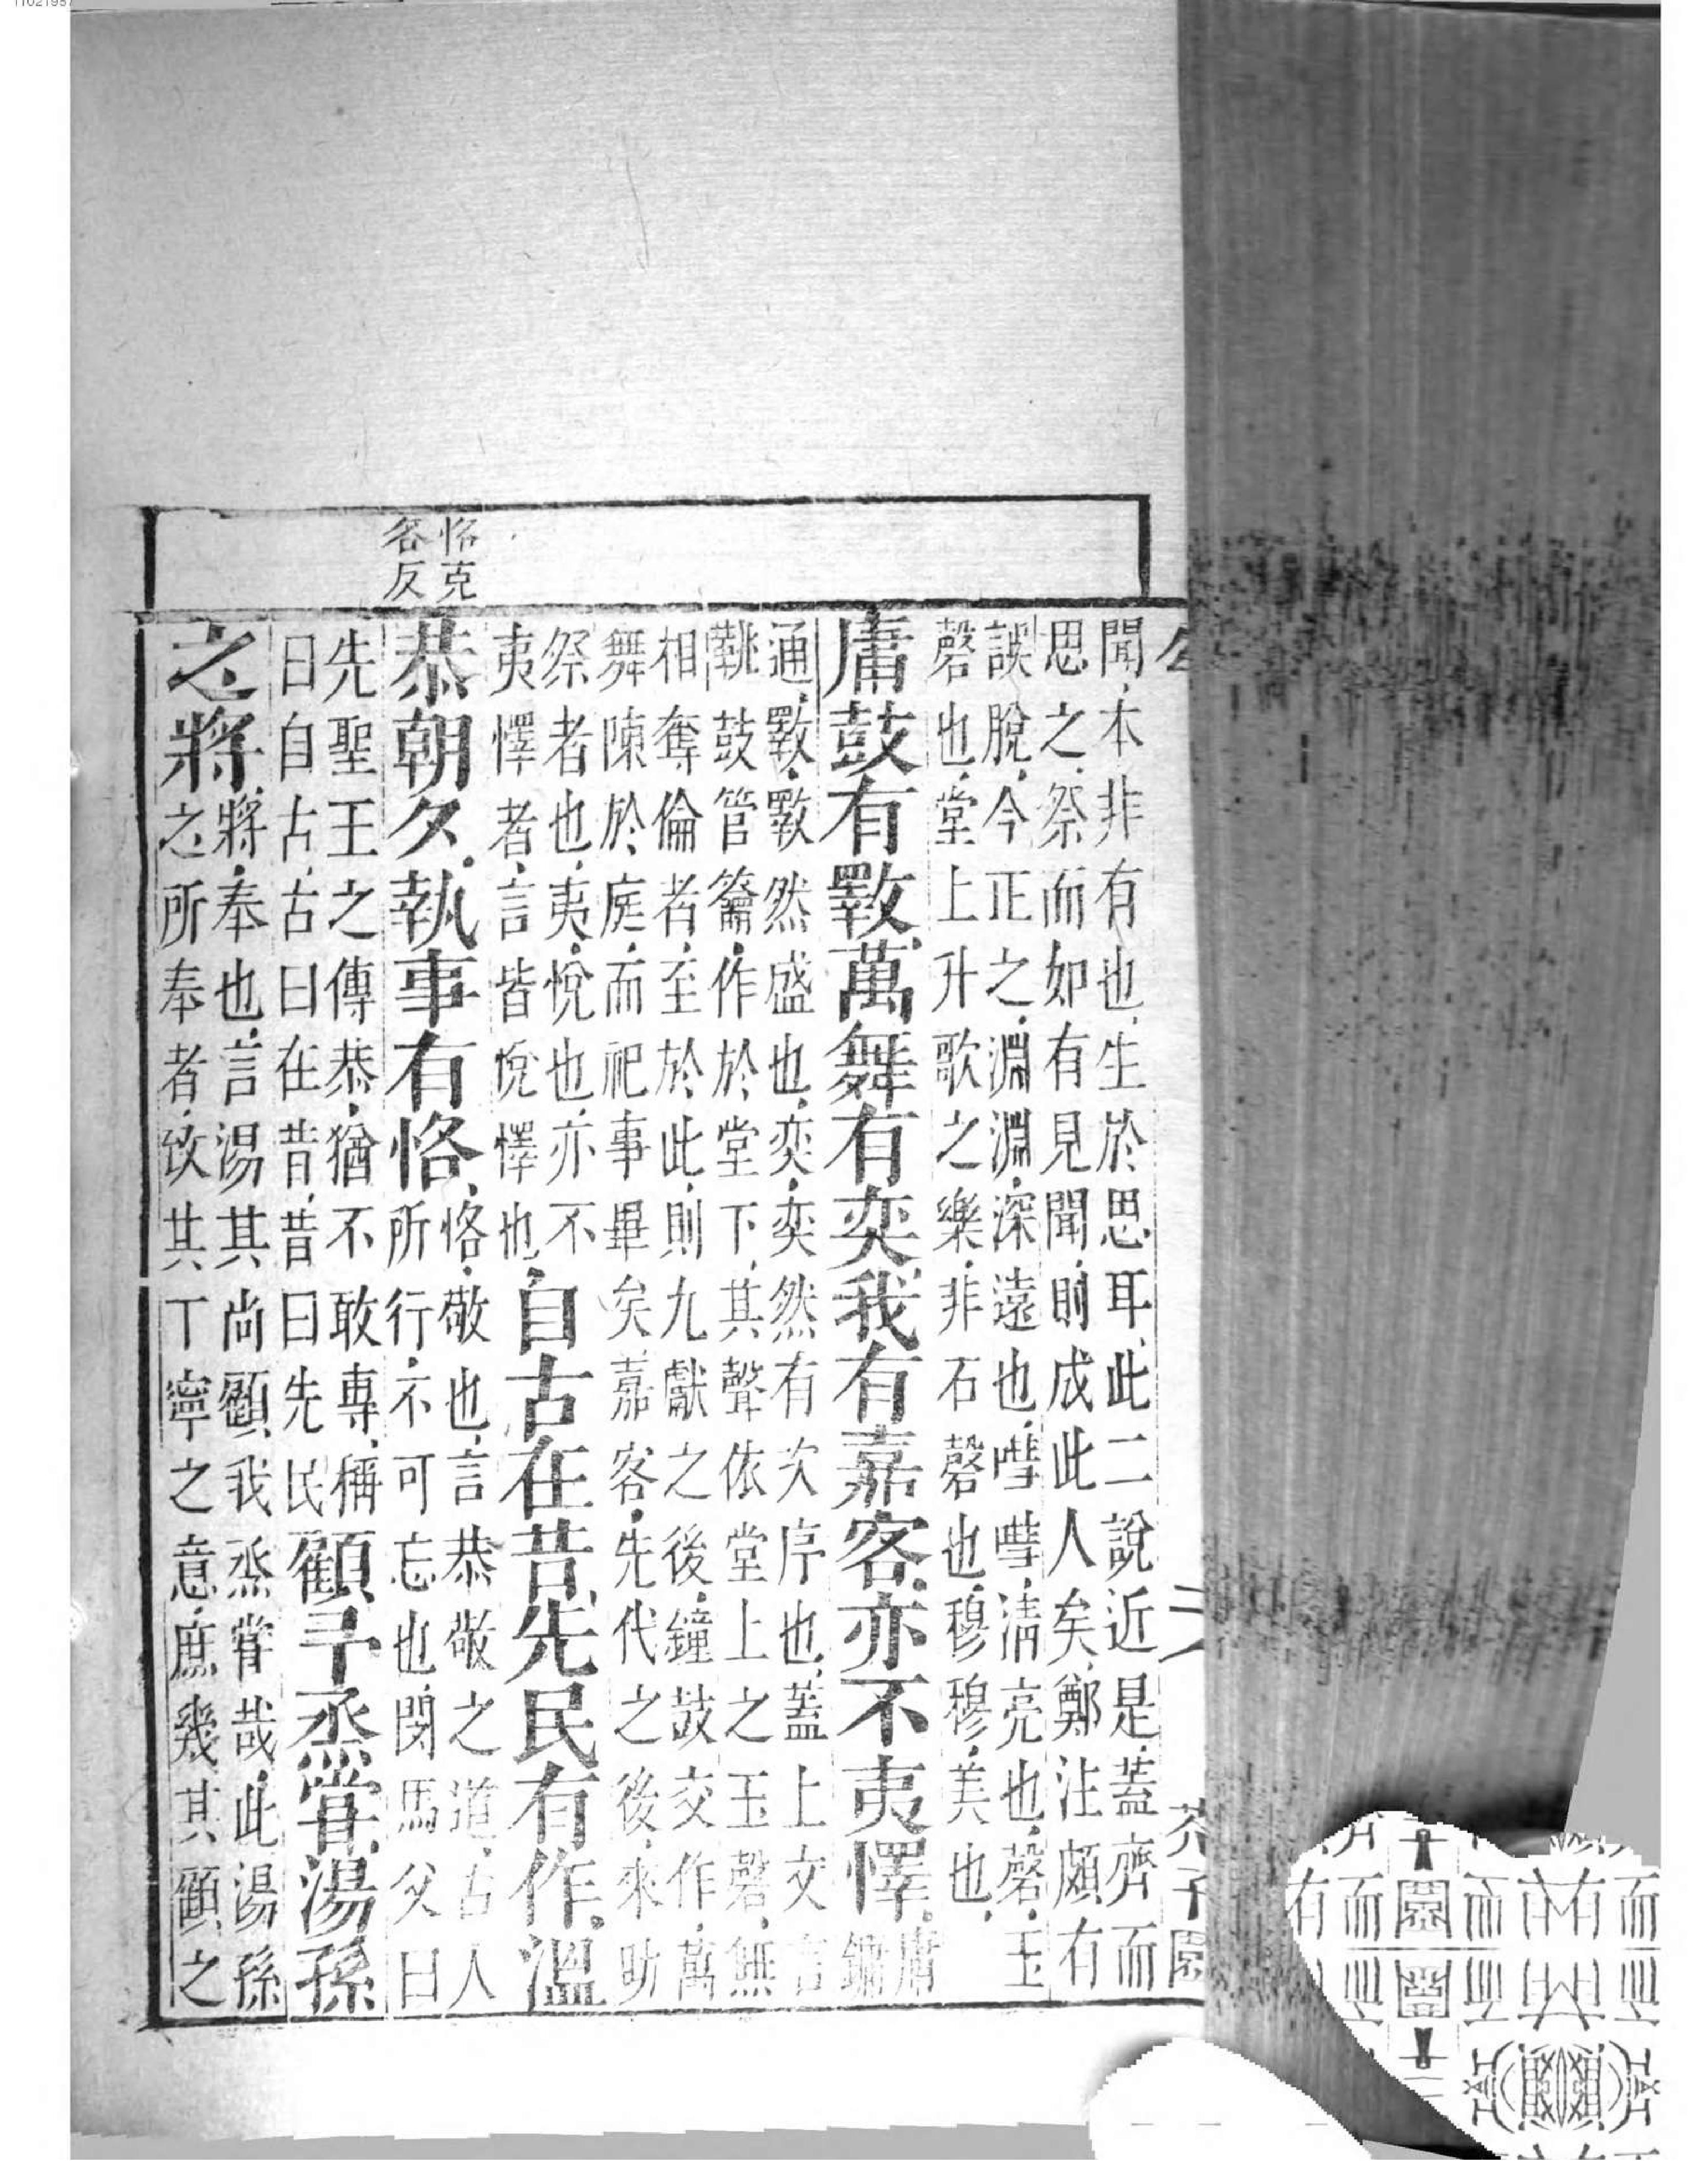 11021987
恪克
各反
聞、本非有也、生於思耳、此二說近是、蓋齊而
思之、祭而如有見聞、則成此人矣、鄭注頗有
誤脫、今正之、淵淵、深遠也、嘒嘒、清亮也、磬、玉
磬也、堂上升歌之樂、非石磬也、穆穆、美也、
庸鼓有斁、萬舞有奕、我有嘉客、亦不夷懌、庸
鏞
通、斁、斁然盛也、奕、奕然有次序也、蓋上文言
鞉鼓管籥、作於堂下、其聲依堂上之玉磬、無
相奪倫者、至於此、則九獻之後、鐘鼓交作、萬
舞陳於庭、而祀事畢矣、嘉客、先代之後、來助
祭者也、夷、悅也、亦不
夷懌者、言皆悅懌也、
自古在昔、先民有作、溫
恭朝夕、執事有恪、
恪、敬也、言恭敬之道、古人
所行、不可忘也、閔馬父曰
先聖王之傳恭、猶不敢專、稱
曰自古、古曰在昔、昔曰先民
顧予烝嘗、湯孫
之將、
將、奉也、言湯其尚顧我烝嘗哉、此湯孫
之所奉者、致其丁寧之意、庶幾其顧之
芥子園